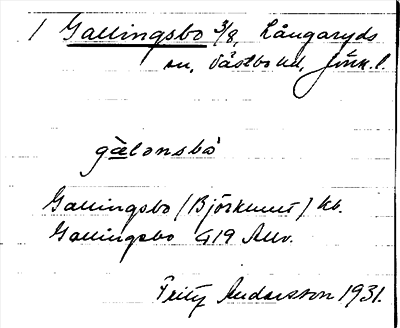 1 Gallingsbo 3/8, Långaryds
sn, Västbo hd, Jönk. l.
gàlənsbò
Gallingsbo (Björkmut) kb.
Gallingsbo G19 Allv.
Fritz Andersson 1931.